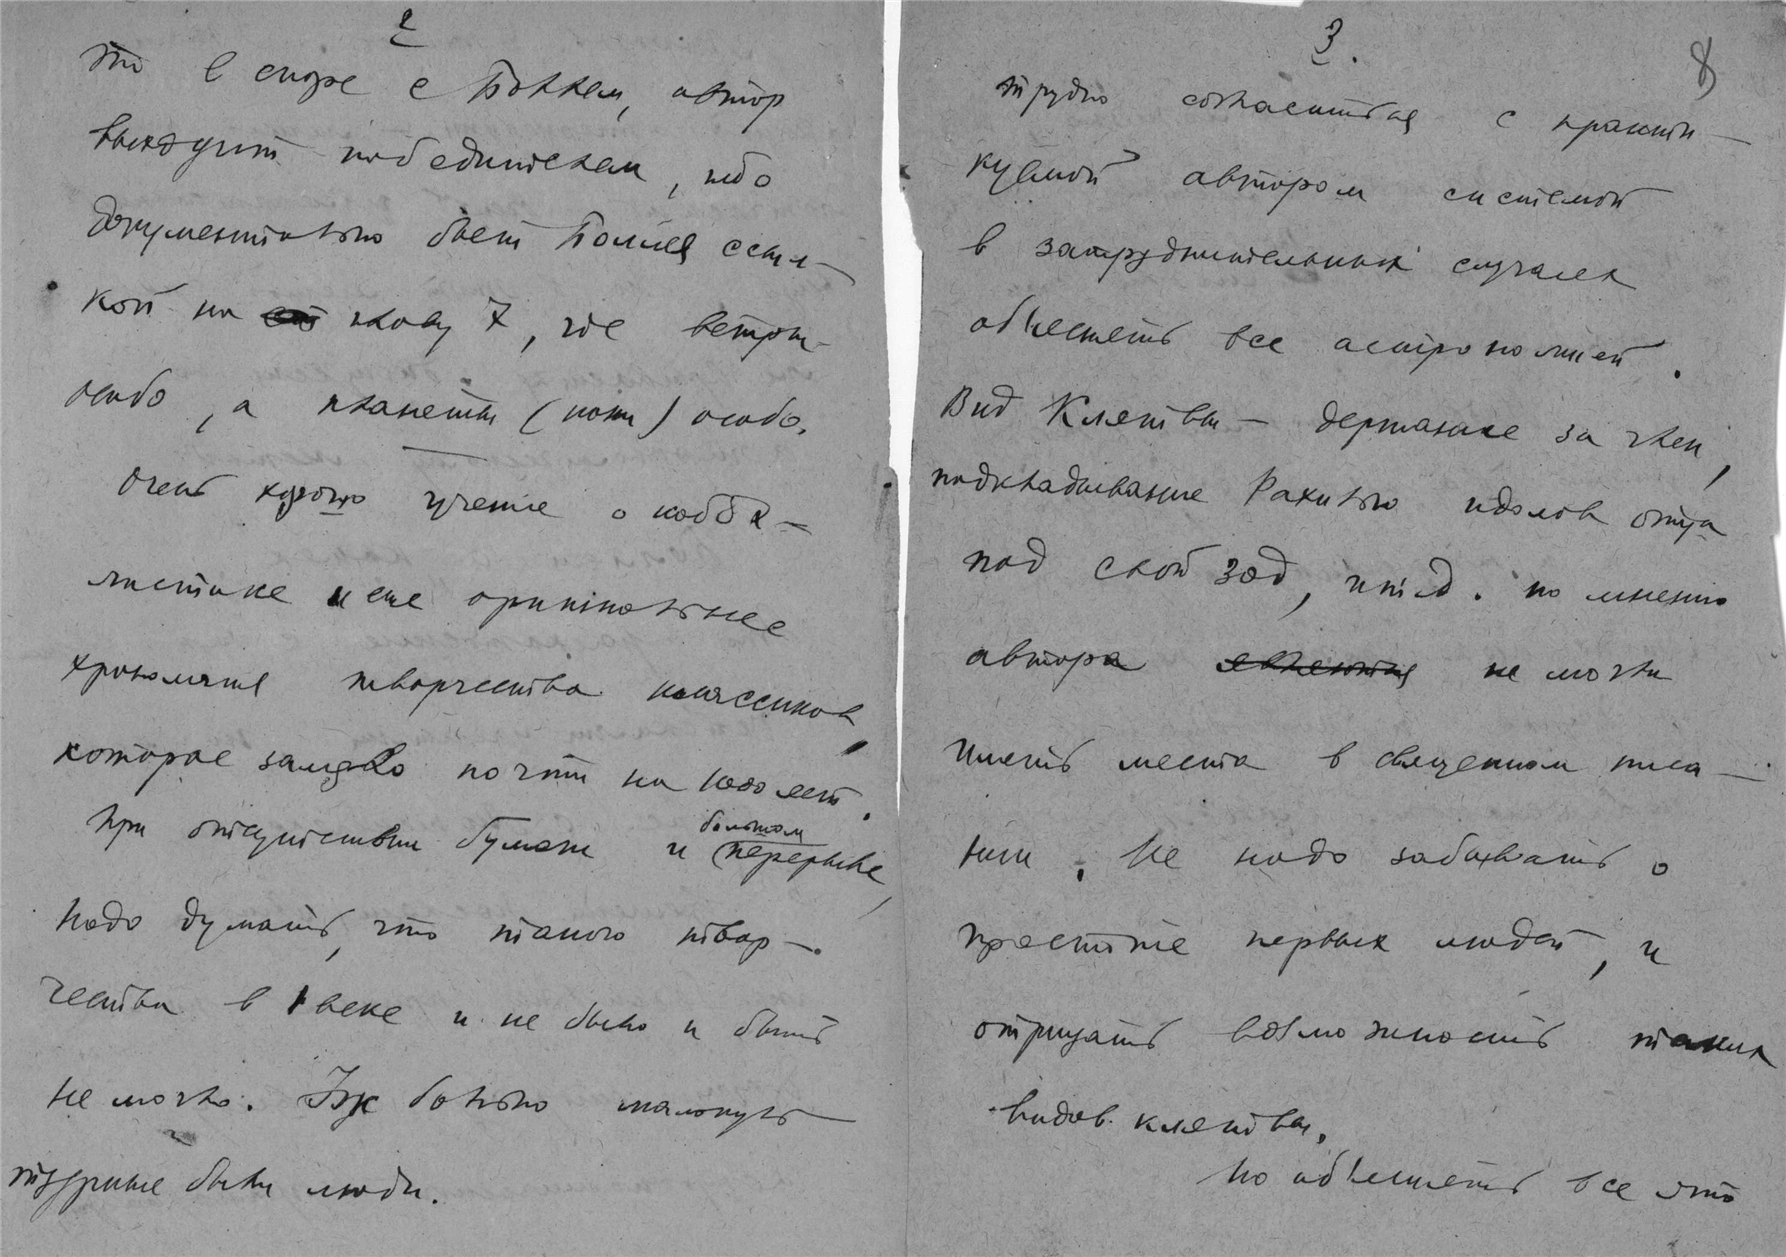 2
что в споре с Боллем, автор
выходит победителем, ибо
документально бьет Болля ссыл-
кой на главу 7, где ветры
особо, а планеты (кони) особо.
Очень хорошо учение о кабба-
листике и еще оригинальнее
хронология творчества классиков,
которое замерло почти на 1000 лет.
При отсутствии бумаги и большом перерыве,
надо думать, что такого твор-
чества в 1 веке и не было и быть
не могло. Уж больно малокуль-
турные были люди.
3.
8
трудно согласиться с практи-
куемой автором системой
в затруднительных случаях
объяснять все астрономией.
Вид Клятвы – держание за член,
подкладывание Рахилью идолов отца
под свой зад, и т.д. по мнению
автора являются не могли
иметь места в священном писа-
нии. Не надо забывать о
простоте первых людей, и
отрицать возможность таких
видов клятвы.
Но объяснять все это